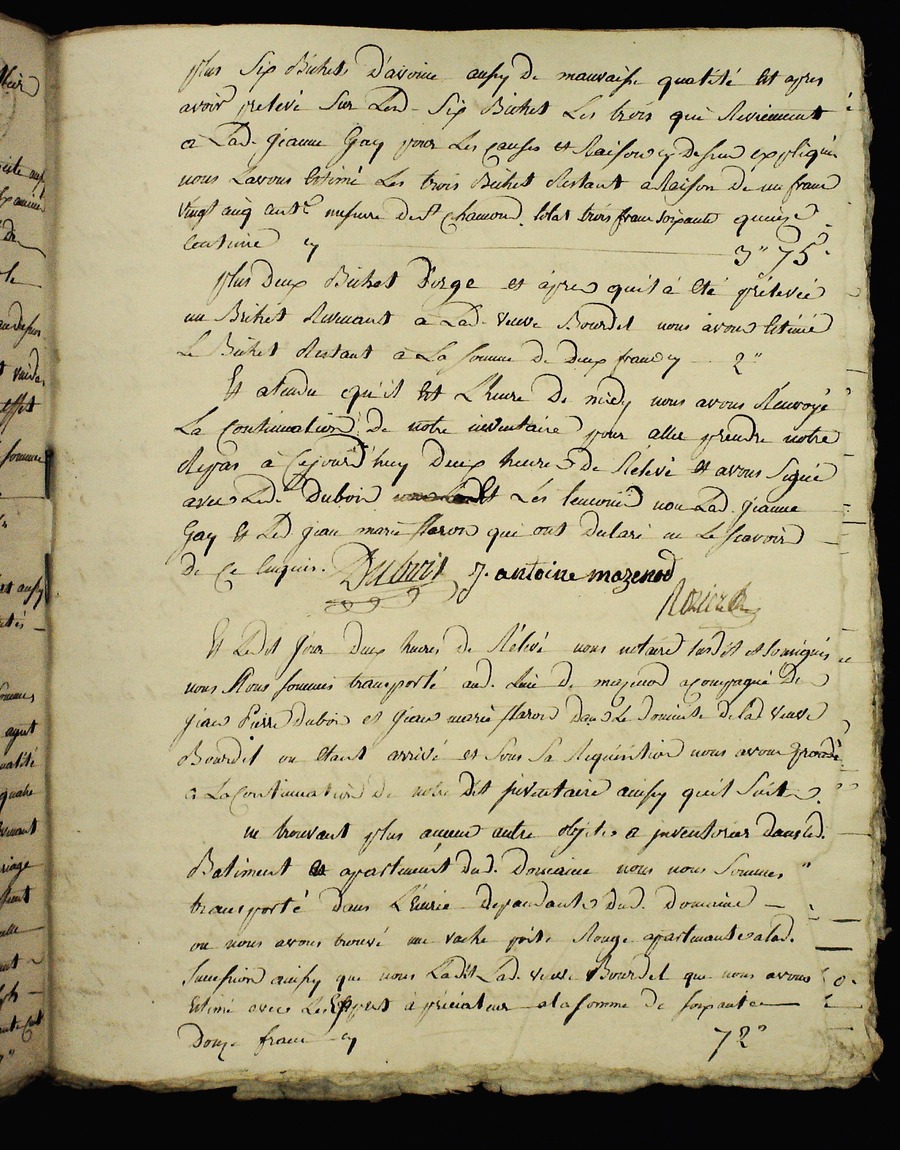 plus six Bichets d'avoine aussy de mauvaise qualité Et apres
avoir prelevé sur Led. six Bichet Les trois qui Reviennent
a Lad. jeanne Gay pour Les causes et Raison cy dessus expliquée
nous L'avons Estimé Les trois Bichet Restant a Raison de un franc
vingt cinq cent.e mesure de St chamond. total trois franc soixante quinze
Centime cy 3" 75
plus deux Bichet d'orge et apres qu'il a été prélevée
un Bichet Revenant a Lad. veuve Bourdel nous avons Estimé
Le Bichet Restant a La somme de deux franc cy 2"
Et atendu qu'il Est L'heure de midy nous avons Renvoyé
La Continuation de notre inventaire pour aller prendre notre
Repas a Cejourd'huy deux heures de Relevé et avons Signé
avec Led. Duboin Et Les temoins non Lad. jeanne
Gay Et Led. jean marie flaron qui ont declaré ne Le scavoir
de Ce Enquis. Duboin J. antoine mazenod

Et Ledit jour deux heures de Rélévé nous notaire susdit et soussignés
nous nous sommes transporté aud. Lieu de mazenod acompagné De
jean Pierre duboin et jean marie flaron dans Le Domicile de lad veuve
Bourdel ou Etant arrivé et sous sa Requisition nous avons procédé
a La Continuation de notre dit inventaire ainsy qu'il suit
ne trouvant plus aucun autre objets a inventorier dans led.
Batiment et apartement dud. Domaine nous nous sommes
transporté dans L'Ecurie dependante dud. Domaine
ou nous avons trouvé une vache poile Rouge apartenante a lad.
succession ainsy que nous L'a dit Lad. veuve Bourdel que nous avons
Estimé avec Les Expert apréciateur a la somme de soixante
Douze franc cy 72"